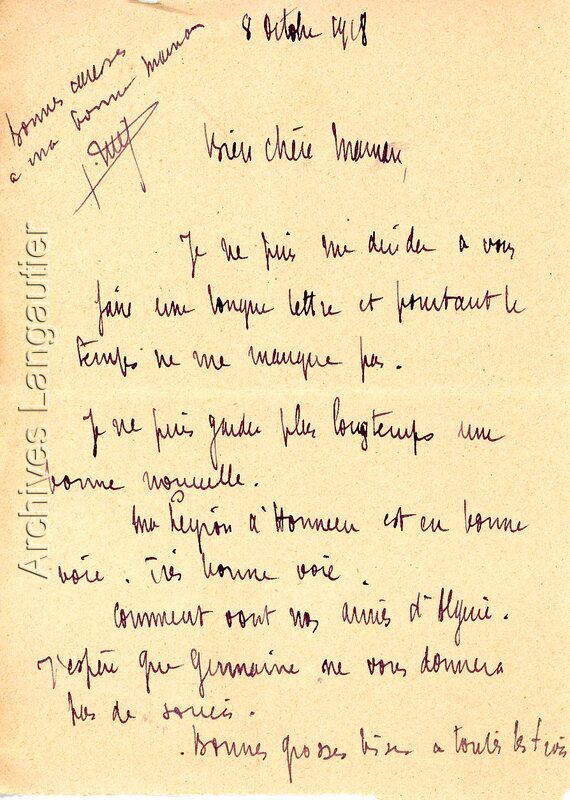 8 Octobre 1918
Bonnes caresses
a ma bonne maman
Bien chère Maman,
Je ne puis me decider a vous
faire une longue lettre et pourtant le
temps ne me manque pas.
Je ne puis garder plus longtemps une
bonne nouvelle.
Ma Légion d'Honneur est en bonne
voie. Très bonne voie.
Comment vont nos amis d'Algerie.
J'espère que Germaine ne vous donnera
pas de soucis.
Bonnes grosses bises a toutes les trois
Archives Langautier